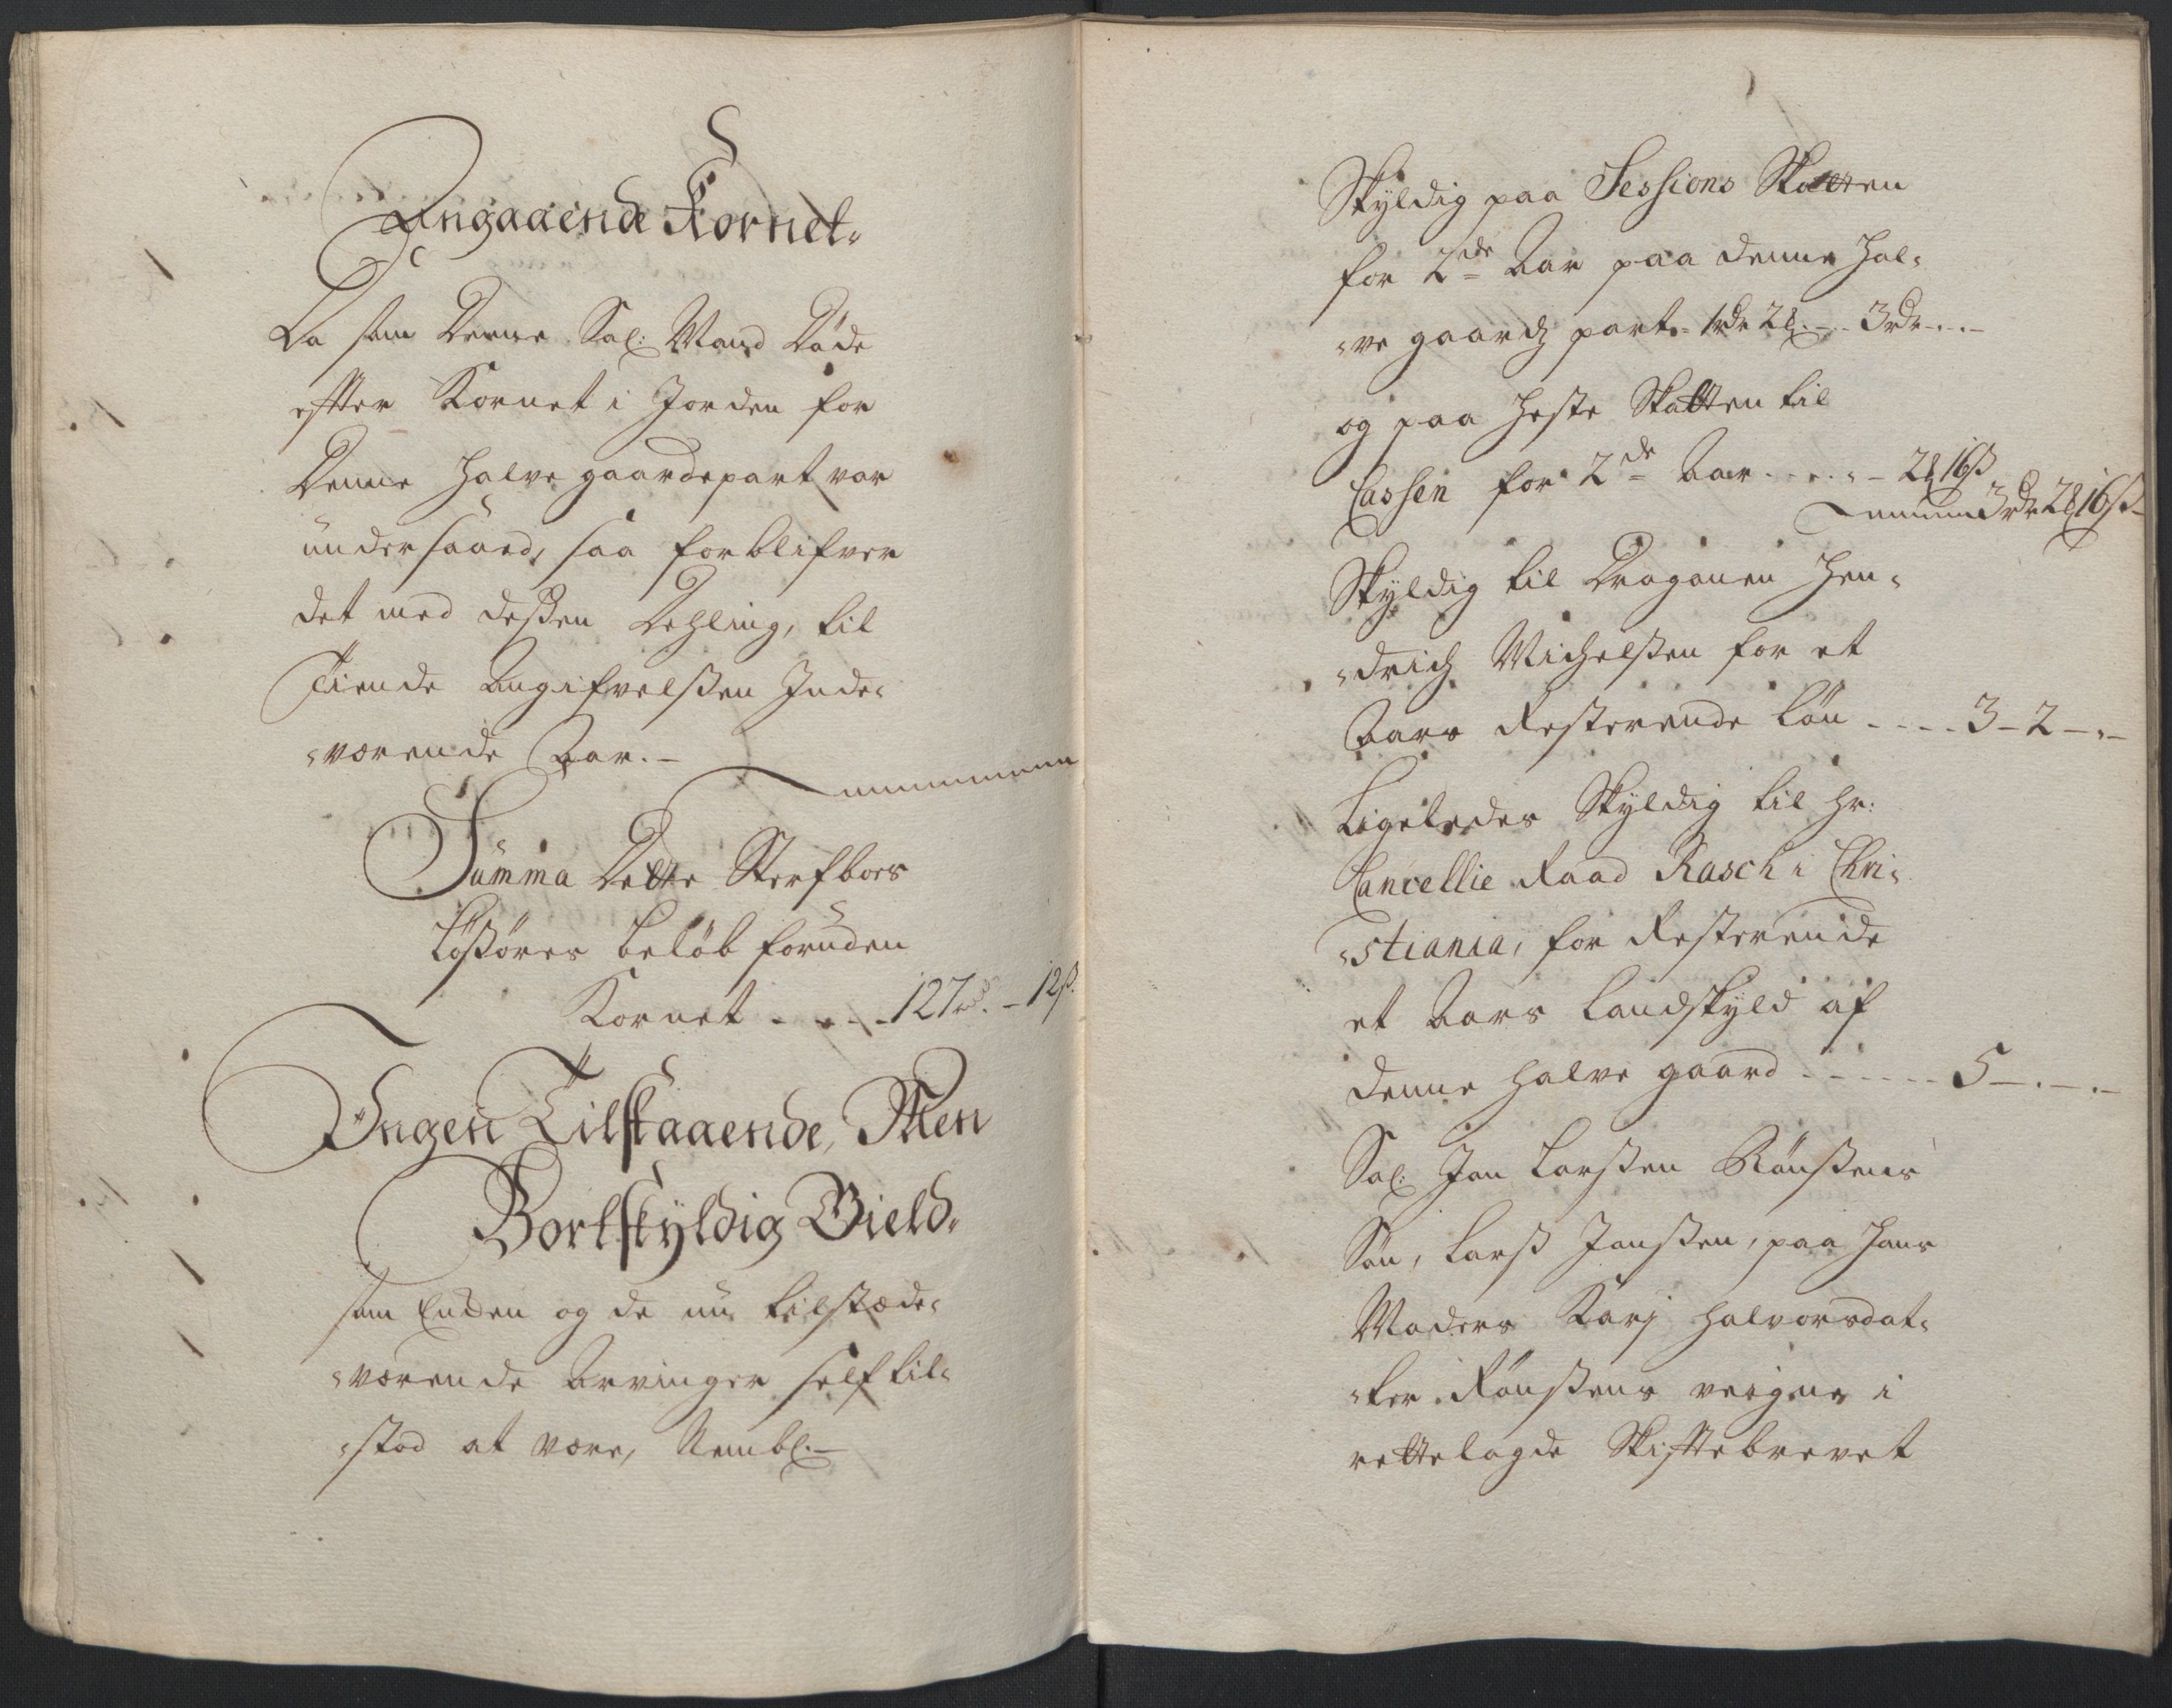 Angaaende Kornet.
Da som Denne Sal: Mand Døde
efter Kornet i Jorden for
Denne halve gaardepart var
undersaaed, saa forblifver
det med deßen Dehling, til
Tiende Angifvelßen Inde-
-værende Aar.-
Summa Dette Sterfboes
Løßøres beløb foruden
Kornet - - - - 127rd. - 12ß.
Ingen Tilstaaende, Men
Bortskyldig Gield.
som Enken og de nu tilstæde-
-værende Arvinger self til-
-stod at være, Nembl.-
Skyldig paa Sessions Skatten
for 2de Aar paa denne hal-
-ve gaardz part - 1rdr 2 - - 3rdr - . -
og paa Heste Skatten til
Cassen for 2de Aar - - - - 2 16ß
3rdr 2 16ß
Skyldig til Dragonen Hen-
-drich Michelßen for et
Aars Resterende Løn - - - - 3 - 2 - . -
Ligeledes Skyldig til Hr:
Cancellie Raad Rasch i Chri-
-stiania, for Resterende
et Aars Landskyld af
denne halve gaard - - - - - - 5 - . - . -
Sal: Jon Larßen Rønßens
Søn, Larß Jonßen, paa Hans
Moders Karj Halvorsdat-
-ter Rønßens veigne i
rettelagde Skiftebrevet